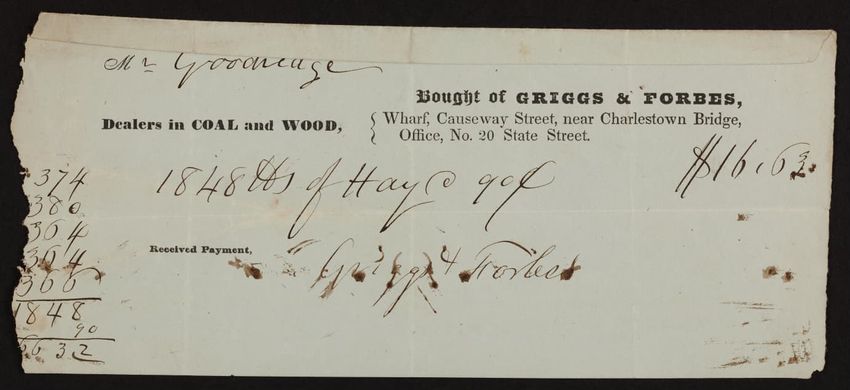 Mr Goodridge
Bought of GRIGGS & FORBES,
Dealers in COAL and WOOD, { Wharf, Causeway Street, near Charlestown Bridge,
Office, No. 20 State Street.
1848 lbs of Hay @ 90¢ $16.63
Received Payment,
Griggs & Forbes
374
380
364
364
366
1848
90
6632